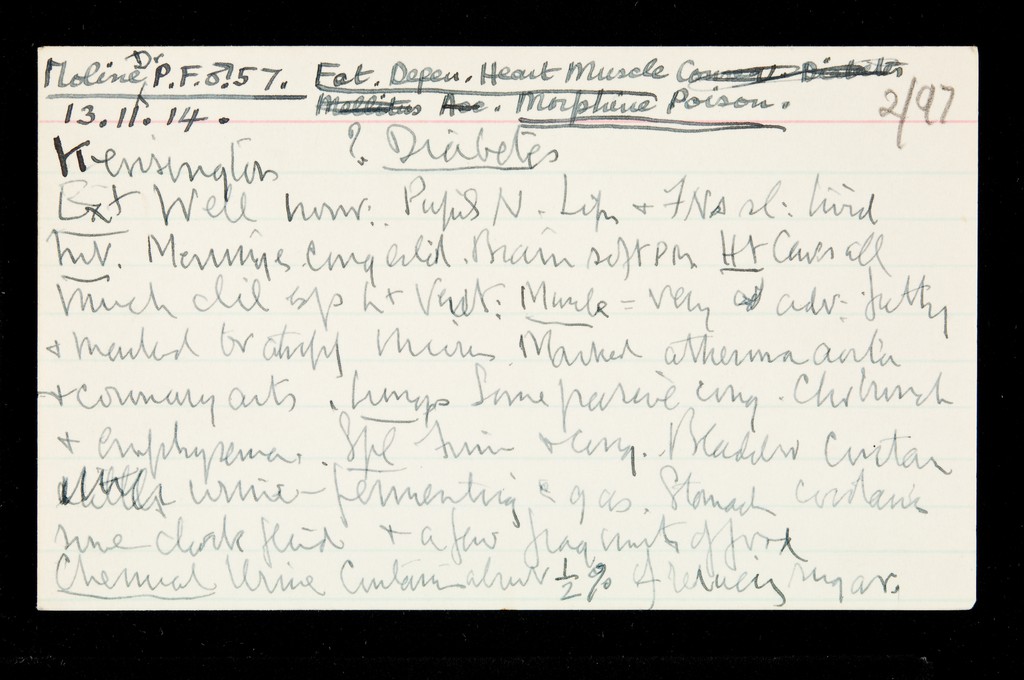 Moline, Dr P. F. ♂. 57. Fat. Degen. Heart Muscle
13.11.14. Mellitus Acc. Morphine Poison. 2/97
Kensington ? Diabetes
Ext Well nour: Pupils N. Lips + FNs sl: livid
Int. Meninges cong. Brain soft pm Ht Caves all
much dil esp Lt Vent: Muscle = very adv: fatty
+ marked br atrophy Marked atheroma aorta
+ coronary arts. Lungs Some passive cong. Ch bronch
+ emphysema. Spl firm + cong. Bladder contain
urine - fermenting c gas. Stomach contains
some dark fluid + a few fragments of food
Chemical Urine Contain about ½ % of reducing sugar.